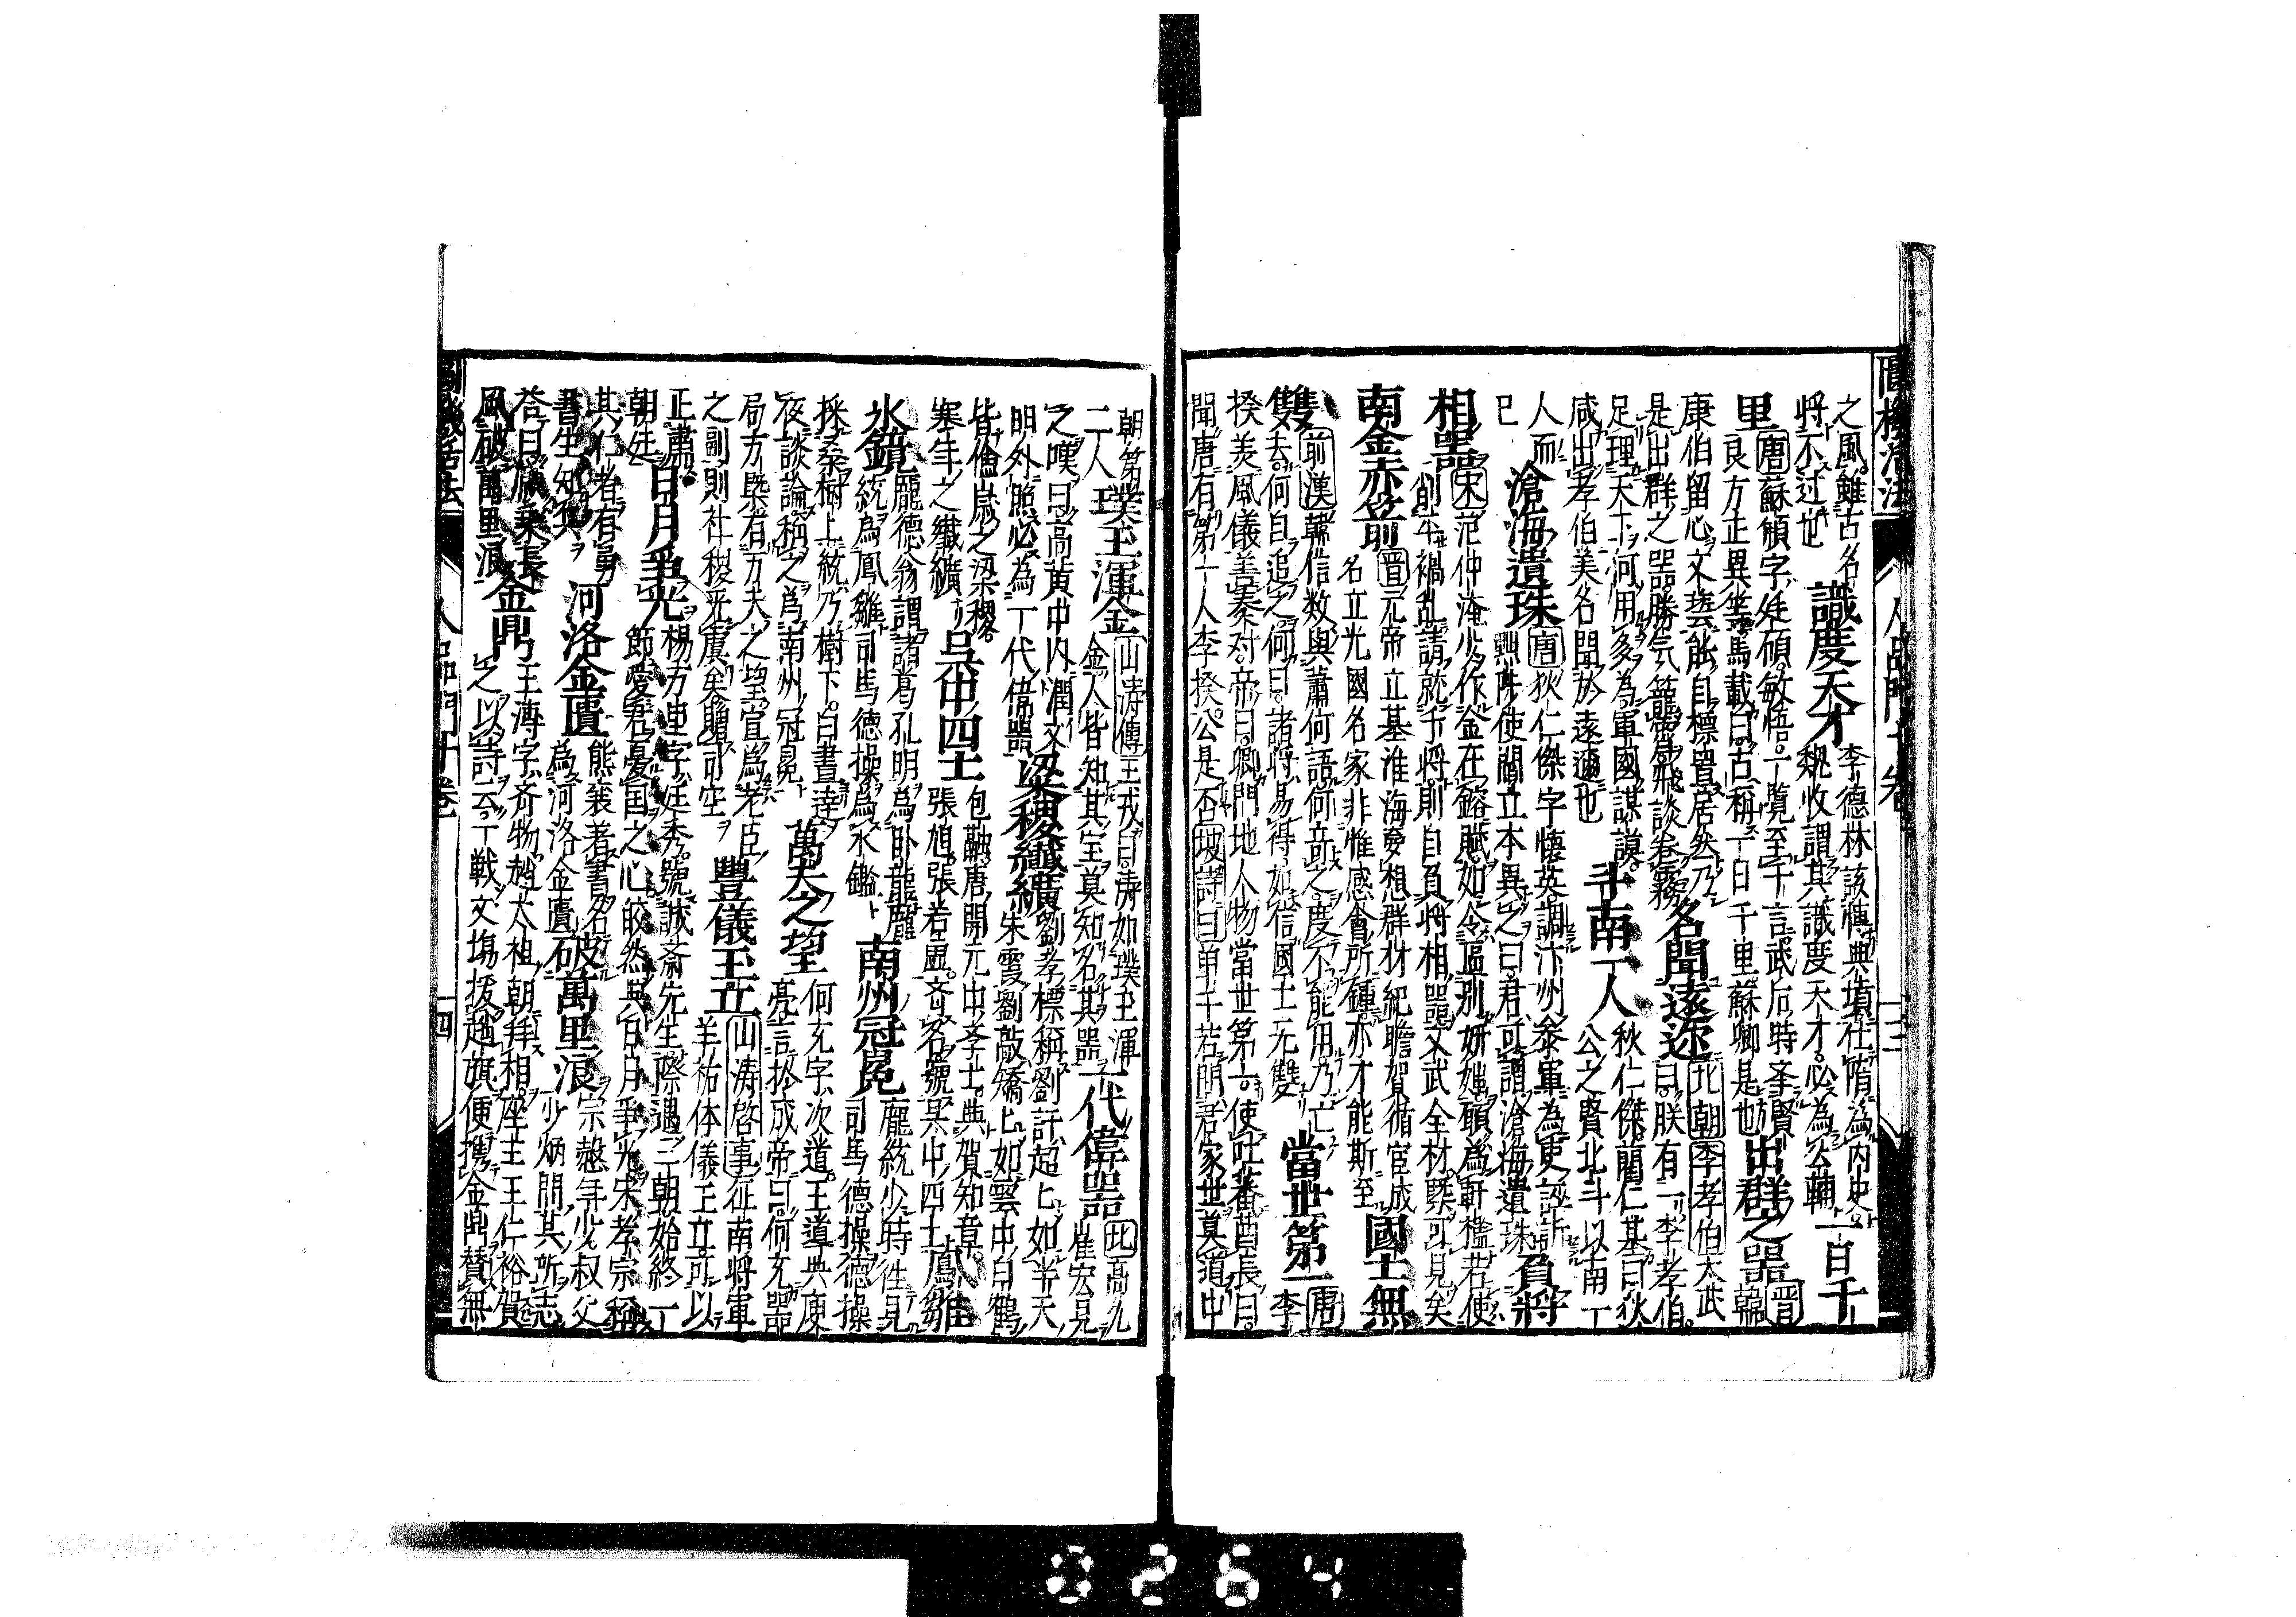 之風雖古名
將不过也
識度天才
李德林該博典墳仕隋為内史
魏收謂其識度天才必為公輔
一日千
里
唐蘇頲字廷碩敏悟一覧至千言武后時李賢
良方正異等馬載曰古稱一日千里蘇卿是也
出群之器
晋韓
康伯留心文藝能自標置居然乃
是出群之器勝気籠霄飛談卷霧
名聞遠迩
北朝李孝伯太武
曰朕有一李孝伯
足理天下何用多為軍國謀謨
咸出孝伯美名聞於遠邇也
斗南一人
狄仁傑藺仁基曰狄
公之賢北斗以南一
人而
已
滄海遺珠
唐狄仁傑字懐英調汴州參軍為吏誣訴
黜陟使閻立本異之曰君可謂滄海遺珠
負將
相器
宋范仲淹少作金在鎔賦如令區別妍媸願為軒檻若使
削平禍乱請就干將則自負將相器文武全材槩可見矣
南金赤箭
晋元帝立基淮海夢想群材紀瞻賀循宦成
名立光國名家非惟感會所鍾亦才能斯至
國士無
雙
前漢韓信数與蕭何語何竒之度不能用乃亡
去何自追之何曰諸將易得如信國士无雙
當世第一
唐李
揆美風儀善奏対帝曰卿門地人物當世第一使吐蕃酋長曰
聞唐有第一人李揆公是否坡詩曰単于若問君家世莫道中
朝第
二人
璞玉渾金
山濤傳王戎曰濤如璞玉渾
金人皆知其宝莫知名其器
一代偉器
北高允
崔宏見
之嘆曰高黄中内潤文
明外照必為一代偉器
梁稷纖纊
劉孝標稱劉訏超々如半天
朱霞劉歊矯々如雲中白鶴
皆儉歳之梁稷
寒年之纖纊
呉中四士
包融唐開元中李士典賀知章
張旭張若虚齊名號呉中四士
鳳雛
水鏡
龎德翁謂諸葛孔明為卧龍龎
統為鳳雛司馬德操為水鑑
南州冠冕
龎統少時徃見
司馬德操德操
採桑樹上統乃樹下白晝達
夜談論稱之為南州冠冕
萬夫之望
何充字次道王道典庾
亮言於成帝曰何充器
局方槩有万夫之望宜為老臣
之副則社稷无虞矣贈司空
豐儀玉立
山濤啓事征南將軍
羊祐体儀玉立可以
正肅
朝廷
日月爭光
楊万里字廷秀號誠斎先生際遇三朝始終一
節愛君憂国之心皎然與日月爭光宋孝宗稱
其仁者有勇
書生知兵
河洛金匱
熊㐮著書名
為河洛金匱
破萬里浪
宗愨年少叔父
少炳問其所志
荅曰願乗長
風破萬里浪
金鼎
王溥字斉物趙太祖朝拜相座主王仁裕賀
之以詩云一戦文塲拔趙旗便携金鼎賛無
人品門十卷
人品門十卷
十四
0264